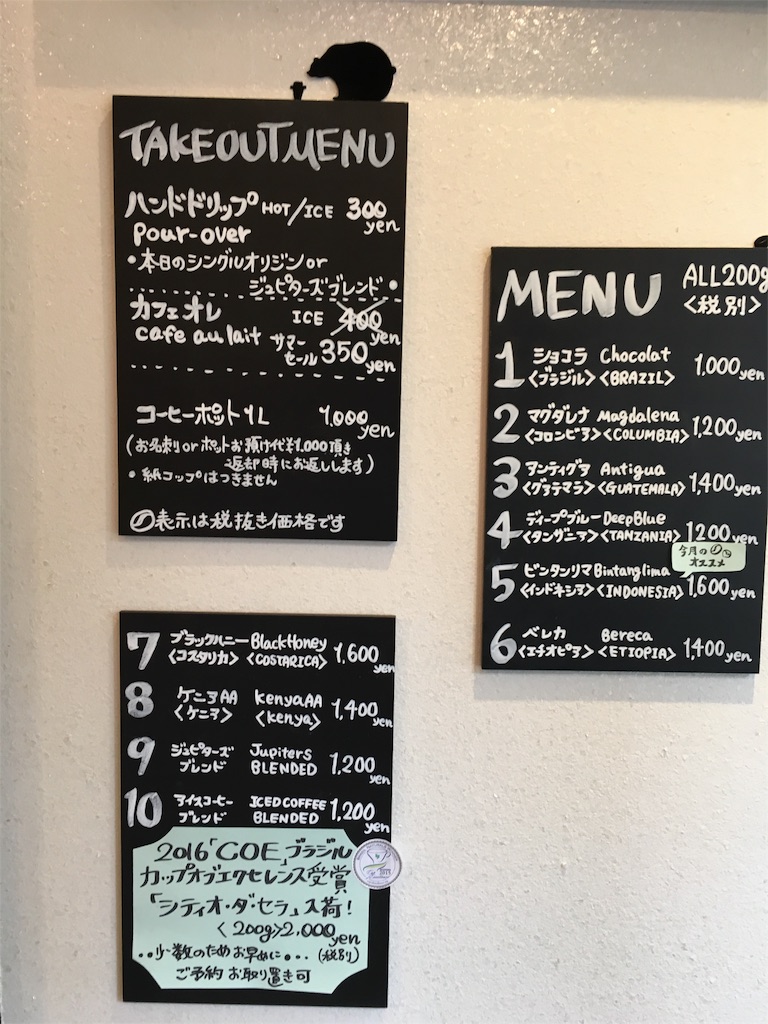 TAKEOUT MENU
ハンドドリップ HOT/ICE 300 yen
pour-over
・本日のシングルオリジン or
ジュピターズブレンド・
カフェオレ ICE 400 yen
cafe au lait サマーセール 350 yen
コーヒーポット 1L 1,000 yen
(お名刺 or ポットお預け代¥1,000頂き
返却時にお返しします)
・紙コップはつきません
表示は税抜き価格です
MENU ALL200g
<税別>
1 ショコラ Chocolat 1,000 yen
<ブラジル> <BRAZIL>
2 マグダレナ Magdalena 1,200 yen
<コロンビア> <COLUMBIA>
3 アンティグア Antigua 1,400 yen
<グァテマラ> <GUATEMALA>
4 ディープブルー DeepBlue 1200 yen
<タンザニア> <TANZANIA>
今月の
オススメ
5 ビンタンリマ Bintanglima 1,600 yen
<インドネシア> <INDONESIA>
6 ベレカ Bereca 1,400 yen
<エチオピア> <ETIOPIA>
7 ブラックハニー BlackHoney 1,600 yen
<コスタリカ> <COSTARICA>
8 ケニアAA kenyaAA 1,400 yen
<ケニア> <kenya>
9 ジュピターズ Jupiters 1,200 yen
ブレンド BLENDED
10 アイスコーヒー ICED COFFEE 1,200 yen
ブレンド BLENDED
2016「COE」ブラジル
カップオブエクセレンス受賞
「シティオ・ダ・セラ」入荷!
<200g> 2,000 yen
・・少数のためお早めに・・・ (税別)
ご予約 お取り置き可